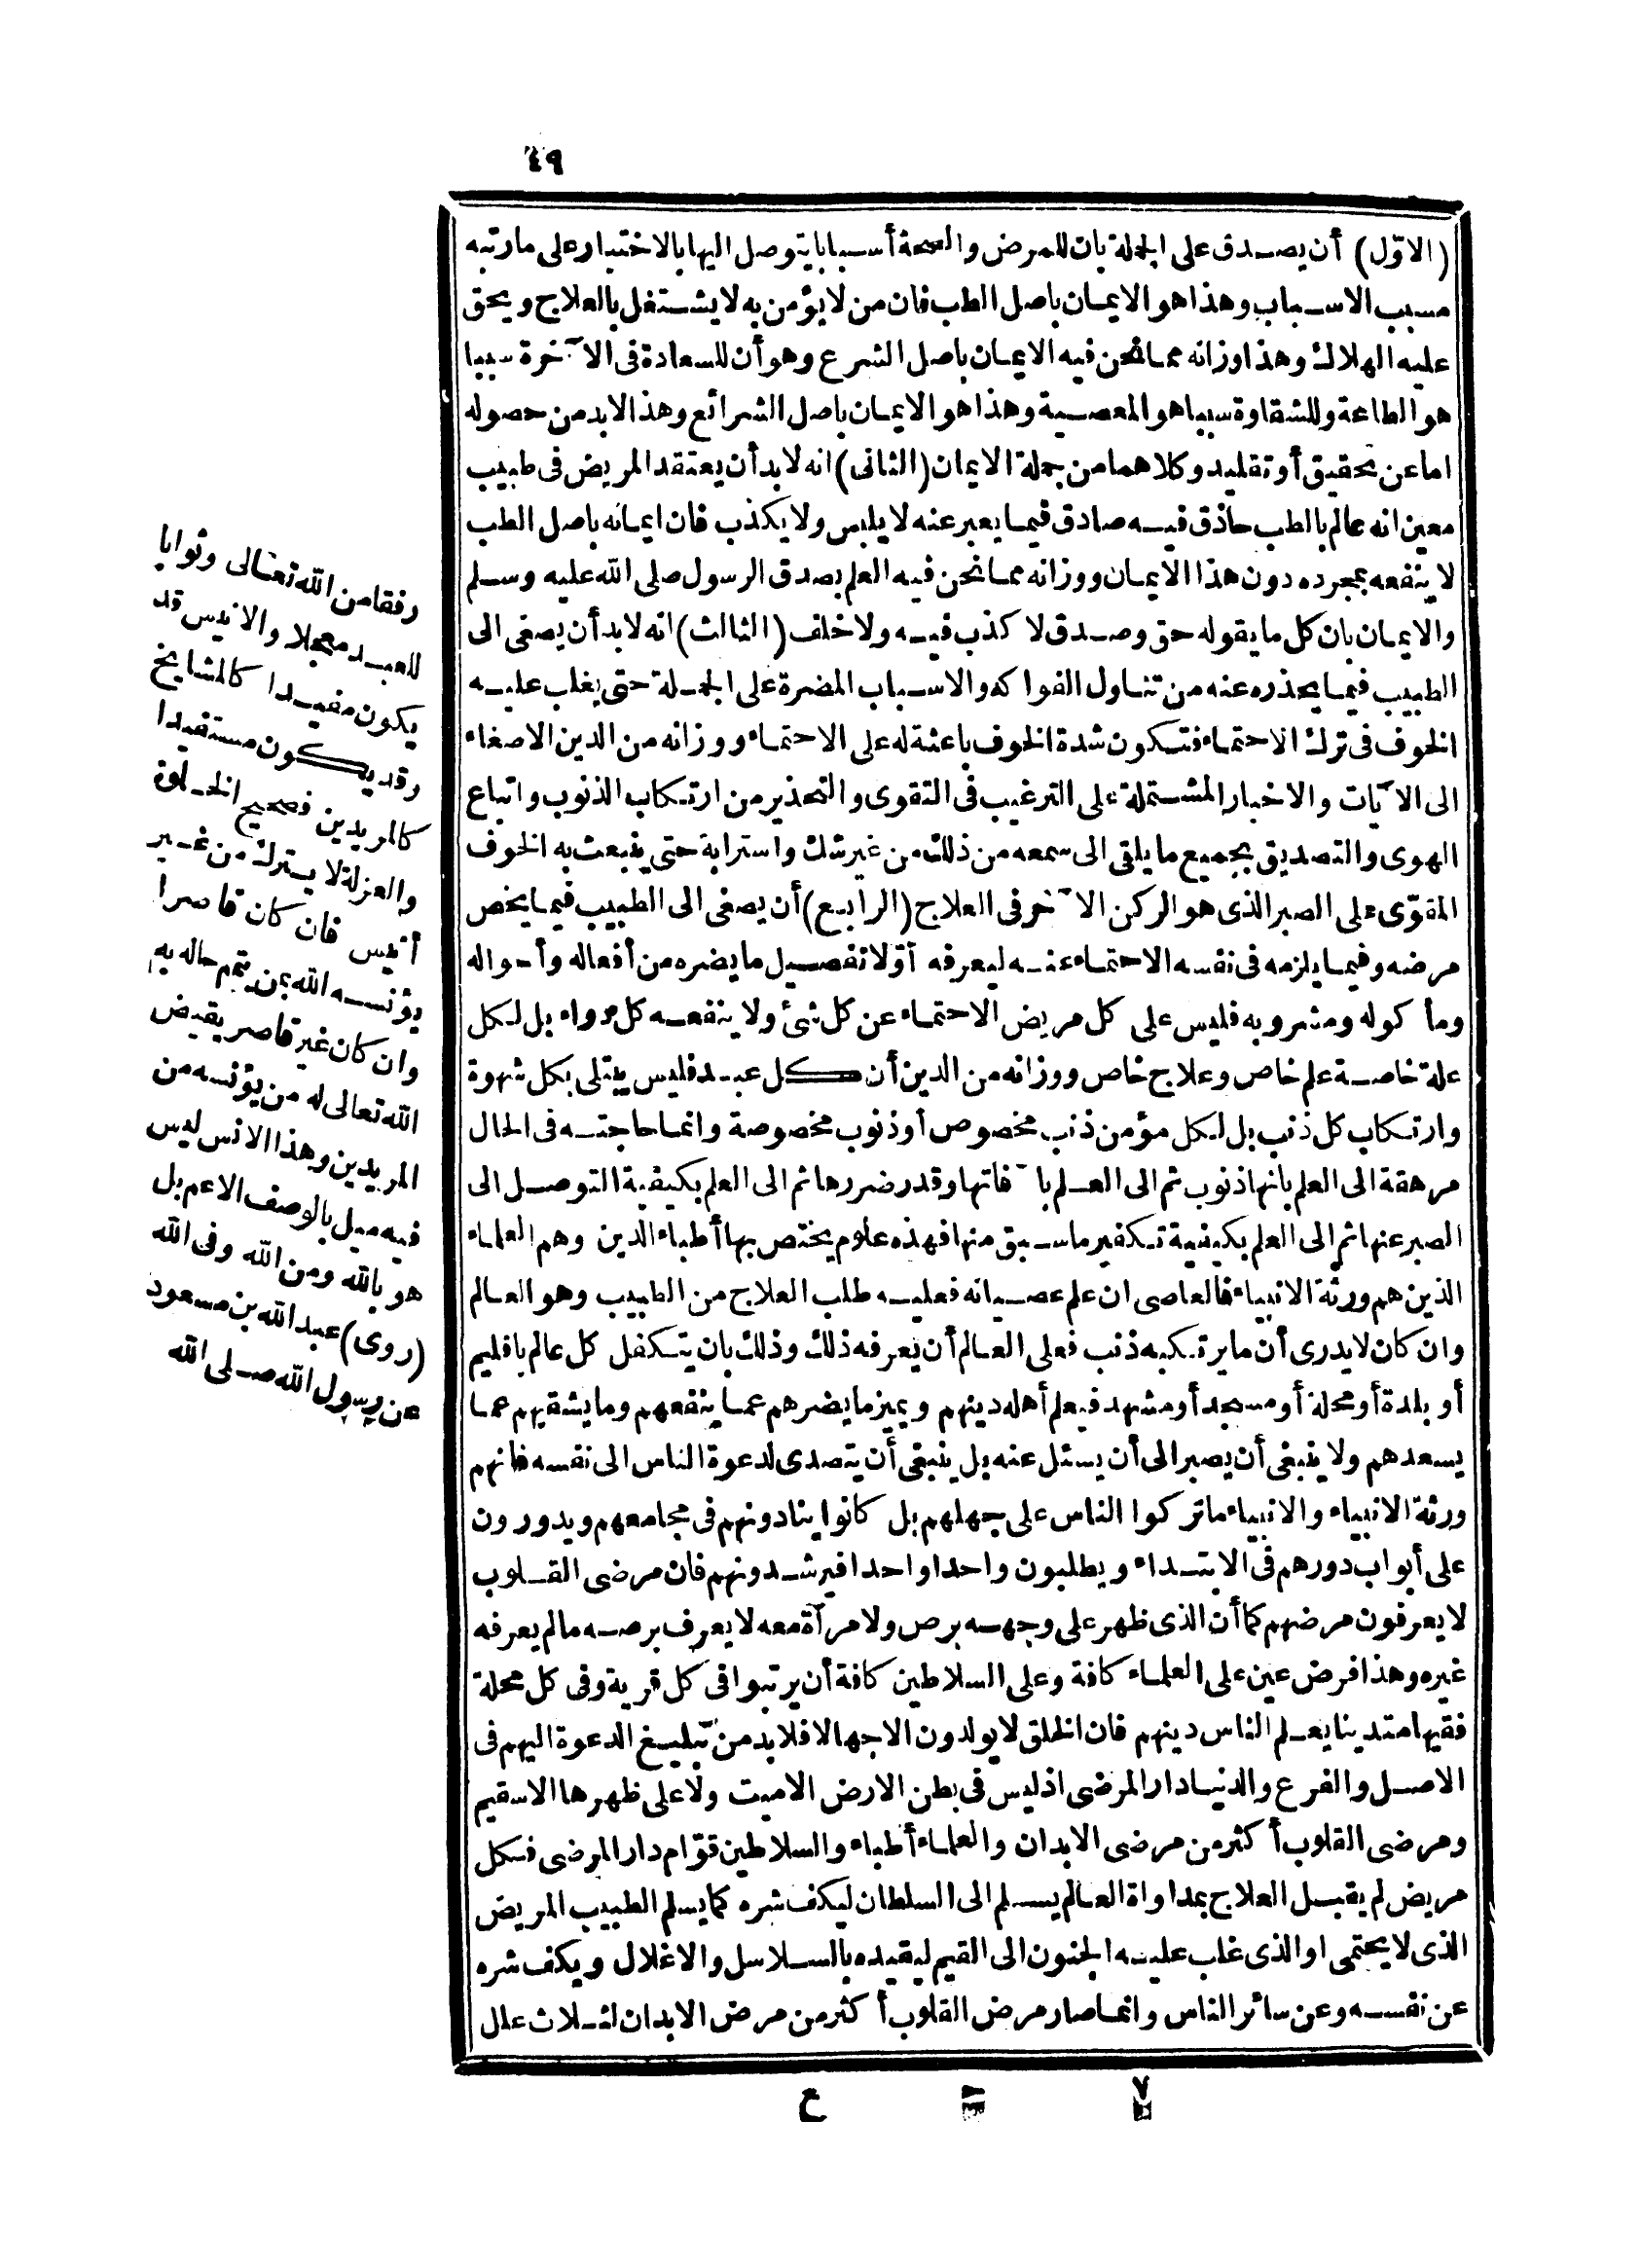 ٤٩
(الاوّل) أن يصدق على الجملة بان للمرض والصحة أسبابا يتوصل اليها بالاختيار على مارتبه
مسبب الاسباب وهذا هو الايمان باصل الطب فان من لا يؤمن به لا يشتغل بالعلاج ويحق
عليه الهلاك وهذا وزانه مما نحن فيه الايمان باصل الشرع وهو أن للسعادة فى الآخرة سببا
هو الطاعة وللشقاوة سببا هو المعصية وهذا هو الايمان باصل الشرائع وهذا لابد من حصوله
اما عن تحقيق أو تقليد وكلاهما من جملة الايمان (الثانى) انه لابد أن يعتقد المريض فى طبيب
معين انه عالم بالطب حاذق فيه صادق فيما يعبر عنه لا يلبس ولا يكذب فان ايمانه باصل الطب
لا ينفعه بمجرده دون هذا الايمان ووزانه مما نحن فيه العلم بصدق الرسول صلى الله عليه وسلم
والايمان بان كل ما يقوله حق وصدق لا كذب فيه ولا خلف (الثالث) انه لابد أن يصغى الى
الطبيب فيما يحذره عنه من تناول الفواكه والاسباب المضرة على الجملة حتى يغلب عليه
الخوف فى ترك الاحتماء فتكون شدة الخوف باعثة له على الاحتماء ووزانه من الدين الاصغاء
الى الآيات والاخبار المشتملة على الترغيب فى التقوى والتحذير من ارتكاب الذنوب واتباع
الهوى والتصديق بجميع ما يلقى الى سمعه من ذلك من غير شك واسترابة حتى ينبعث به الخوف
المقوّى على الصبر الذى هو الركن الآخر فى العلاج (الرابع) أن يصغى الى الطبيب فيما يخص
مرضه وفيما يلزمه فى نفسه الاحتماء عنه ليعرفه أوّلا تفصيل ما يضره من أفعاله وأحواله
ومأكوله ومشروبه فليس على كل مريض الاحتماء عن كل شئ ولا ينفعه كل دواء بل لكل
علة خاصة علم خاص وعلاج خاص ووزانه من الدين أن كل عبد فليس يبتلى بكل شهوة
وارتكاب كل ذنب بل لكل مؤمن ذنب مخصوص أو ذنوب مخصوصة وانما حاجته فى الحال
مرهقة الى العلم بانها ذنوب ثم الى العلم بآفاتها وقدر ضررها ثم الى العلم بكيفية التوصل الى
الصبر عنها ثم الى العلم بكيفية تكفير ما سبق منها فهذه علوم يختص بها أطباء الدين وهم العلماء
الذين هم ورثة الانبياء فالعاصى ان علم عصيانه فعليه طلب العلاج من الطبيب وهو العالم
وان كان لا يدرى أن ما يرتكبه ذنب فعلى العالم أن يعرفه ذلك وذلك بان يتكفل كل عالم باقليم
أو بلدة أو محلة أو مسجد أو مشهد فيعلم أهله دينهم ويميز ما يضرهم عما ينفعهم وما يشقيهم عما
يسعدهم ولا ينبغى أن يصبر الى أن يسئل عنه بل ينبغى أن يتصدى لدعوة الناس الى نفسه فانهم
ورثة الانبياء والانبياء ما تركوا الناس على جهلهم بل كانوا ينادونهم فى مجامعهم ويدورون
على أبواب دورهم فى الابتداء ويطلبون واحدا واحدا فيرشدونهم فان مرضى القلوب
لا يعرفون مرضهم كما أن الذى ظهر على وجهه برص ولا مرآة معه لا يعرف برصه ما لم يعرفه
غيره وهذا فرض عين على العلماء كافة وعلى السلاطين كافة أن يرتبوا فى كل قرية وفى كل محلة
فقيها متدينا يعلم الناس دينهم فان الخلق لا يولدون الا جهالا فلابد من تبليغ الدعوة اليهم فى
الاصل والفرع والدنيا دار المرضى اذ ليس فى بطن الارض الا ميت ولا على ظهرها الا سقيم
ومرضى القلوب أكثر من مرضى الابدان والعلماء أطباء والسلاطين قوّام دار المرضى فكل
مريض لم يقبل العلاج بمداواة العالم يسلم الى السلطان ليكف شره كما يسلم الطبيب المريض
الذى لا يحتمى او الذى غلب عليه الجنون الى القيم ليقيده بالسلاسل والاغلال ويكف شره
عن نفسه وعن سائر الناس وانما صار مرض القلوب أكثر من مرض الابدان لثلاث علل
رفقا من الله تعالى وثوابا
للعبد معجلا والانيس قد
يكون مفيدا كالمشايخ
وقد يكون مستفيدا
كالمريدين فصحيح الخلوة
والعزلة لا يترك من غير
أنيس فان كان قاصرا
يؤنسه الله بمن يتمم حاله به
وان كان غير قاصر يقيض
الله تعالى له من يؤنسه من
المريدين وهذا الانس ليس
فيه ميل بالوصف الاعم بل
هو بالله ومن الله وفى الله
(روى) عبد الله بن مسعود
عن رسول الله صلى الله
٧
ع